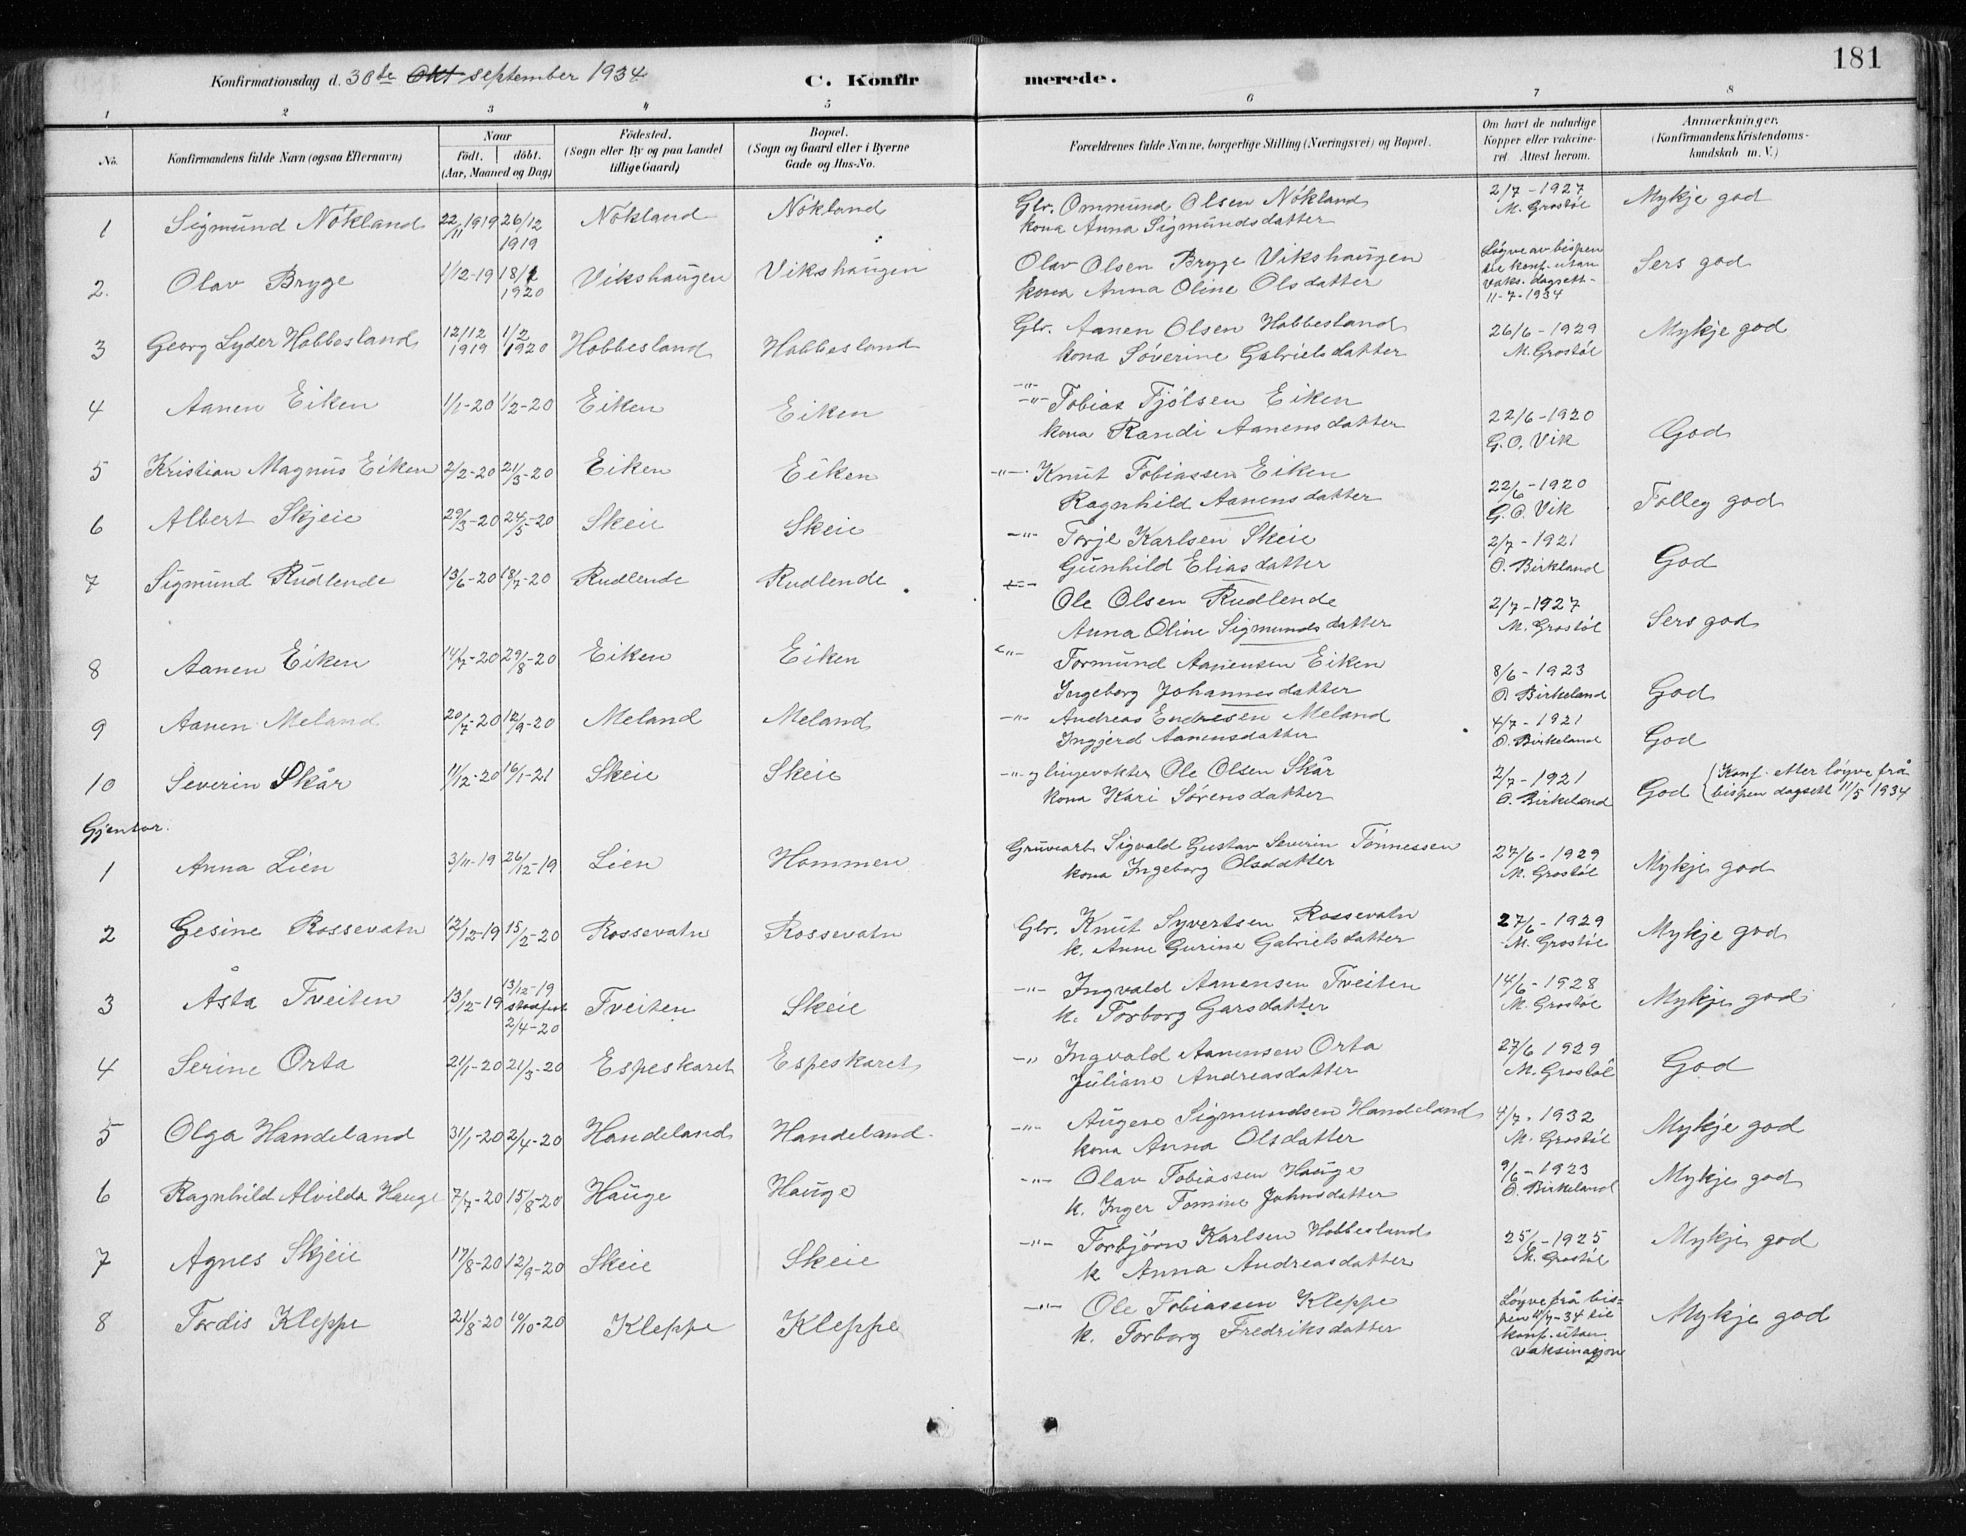 181
Konfirmationsdag d. 30te Okt september 1934
C. Konfirmerede.
1 2 3 4 5 6 7 8
No. Konfirmandens fulde Navn (ogsaa Efternavn) Naar födt. döbt. (Aar, Maaned og Dag) Födested. (Sogn eller By og paa Landet tillige Gaard) Bopæl. (Sogn og Gaard eller i Byerne Gade og Hus-No. Forældrenes fulde Navne, borgerlige Stilling (Næringsvei) og Bopæl. Om havt de naturlige Kopper eller vakcineret. Attest herom. Anmærkninger. (Konfirmandens Kristendomskundskab m. V.)
1 Sigmund Nökland 22/11 1919 26/12 1919 Nökland Nökland Gbr. Ommund Olsen Nökland kona Anna Sigmundsdatter 2/7-1927 M. Grostöl Mykje god
2. Olav Bryge 1/12-19 18/1 1920 Vikshaugen Vikshaugen Olav Olsen Bryge Vikshaugen kona Anna Oline Olsdatter Löyve av bispen til konf. utan vaks. dagsett 11-7-1934 Sers god
3 Georg Lyder Hobbesland 12/12 1919 1/2 1920 Hobbesland Hobbesland Gbr. Aanen Olsen Hobbesland kona Söverine Gabrielsdatter 26/6-1929 M. Grostöl Mykje god
4 Aanen Eiken 1/1-20 1/2-20 Eiken Eiken -"- -"- Tobias Fjölsen Eiken kona Randi Aanensdatter 22/6-1920 G. O. Vik God
5 Kristian Magnus Eiken 2/2-20 21/3-20 Eiken Eiken -"- Knut Tobiassen Eiken Ragnhild Aanensdatter 22/6-1920 G. O. Vik Folleg god
6 Albert Skjeie 29/3-20 24/5-20 Skeie Skeie -"- Torje Karlsen Skeie Gunhild Eliasdatter 2/7-1921 O. Birkland God
7 Sigmund Rudlende 13/6-20 18/7-20 Rudlende Rudlende -"- Ole Olsen Rudlende Anna Oline Sigmundsdatter 2/7-1927 M. Grostöl Sers god
8 Aanen Eiken 14/7-20 29/8-20 Eiken Eiken -"- Tormund Aanensen Eiken Ingeborg Johannesdatter 8/6-1923 O. Birkeland God
9 Aanen Meland 20/7-20 12/9-20 Meland Meland -"- Andreas Endresen Meland Ingjerd Aanensdatter 4/7-1921 O. Birkeland God
10 Severin Skår 11/12-20 16/1-21 Skeie Skeie -"- og lingevakter Ole Olsen Skår kona Kari Sörensdatter 2/7-1921 O. Birkeland God (Konf. etter löyve frå bispen dagsett 11/5 1934
Gjentor.
1 Anna Lien 3/11-19 26/12-19 Lien Hommen Gruvearb. Sigvald Gustav Severin Tönnessen kona Ingeborg Olsdatter 27/6-1929 M. Grostöl Mykje god
2 Gesine Rossevatn 12/12-19 15/2-20 Rossevatn Rossevatn Gbr. Knut Syvertsen Rossevatn k. Anne Gurine Gabrielsdatter 27/6-1929 M. Grostöl Mykje god
3 Åsta Tveiten 13/12-19 13/12-19 2/4-20 Tveiten Skeie -"- Ingvald Aanensen Tveiten k. Torborg Garsdatter 14/6-1928 M. Grostöl Mykje god
4 Serine Orta 21/1-20 21/3-20 Espeskaret Espeskaret -"- Ingvald Aanensen Orta Juliane Andreasdatter 27/6 1929 M. Grostöl God
5 Olga Handeland 31/1-20 2/4-20 Handeland Handeland -"- Augen Sigmundsen Handeland kona Anna Olsdatter 4/7-1932 M. Grostöl Mykje god
6 Ragnhild Alvilda Hauge 7/7-20 15/8-20 Hauge Hauge -"- Olav Tobiassen Hauge k. Inger Tomine Johnsdatter 9/6-1923 O. Birkeland Mykje god
7 Agnes Skjeie 17/8-20 12/9-20 Skeie Skeie -"- Torbjörn Karlsen Hobbesland k Anna Andreasdatter 25/6-1925 M. Grostöl Mykje god
8 Tordis Kleppe 21/8-20 10/10-20 Kleppe Kleppe -"- Ole Tobiassen Kleppe k. Torborg Fredriksdatter Löyve frå bispen 11/7-34 til konf. utan vaksinasjon Mykje god